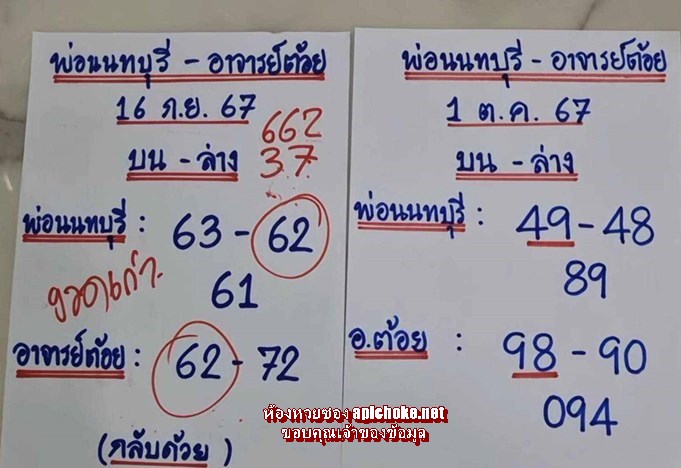 พ่อนนทบุรี - อาจารย์ต้อย
16 ก.ย. 67
662
บน - ล่าง 37
พ่อนนทบุรี : 63 - 62
งวดเก่า 61
อาจารย์ต้อย : 62 - 72
(กลับด้วย)
พ่อนนทบุรี - อาจารย์ต้อย
1 ต.ค. 67
บน - ล่าง
พ่อนนทบุรี : 49 - 48
89
อ.ต้อย : 98 - 90
094
ห้องหวยซอง apichoke.net
ขอบคุณเจ้าของข้อมุล